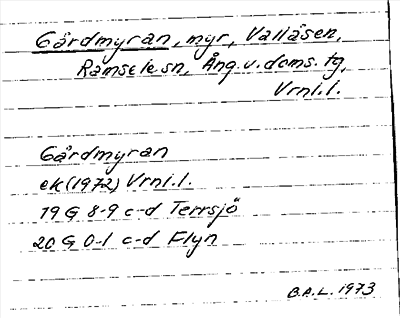 Gårdmyran, myr, Vallåsen,
Ramsele sn, Ång. v. doms. tg,
Vrnl.l.
Gårdmyran
ek (1972) Vrnl.l.
19 G 8-9 c-d Terrsjö
20 G 0-1 c-d Flyn
B.A.L. 1973